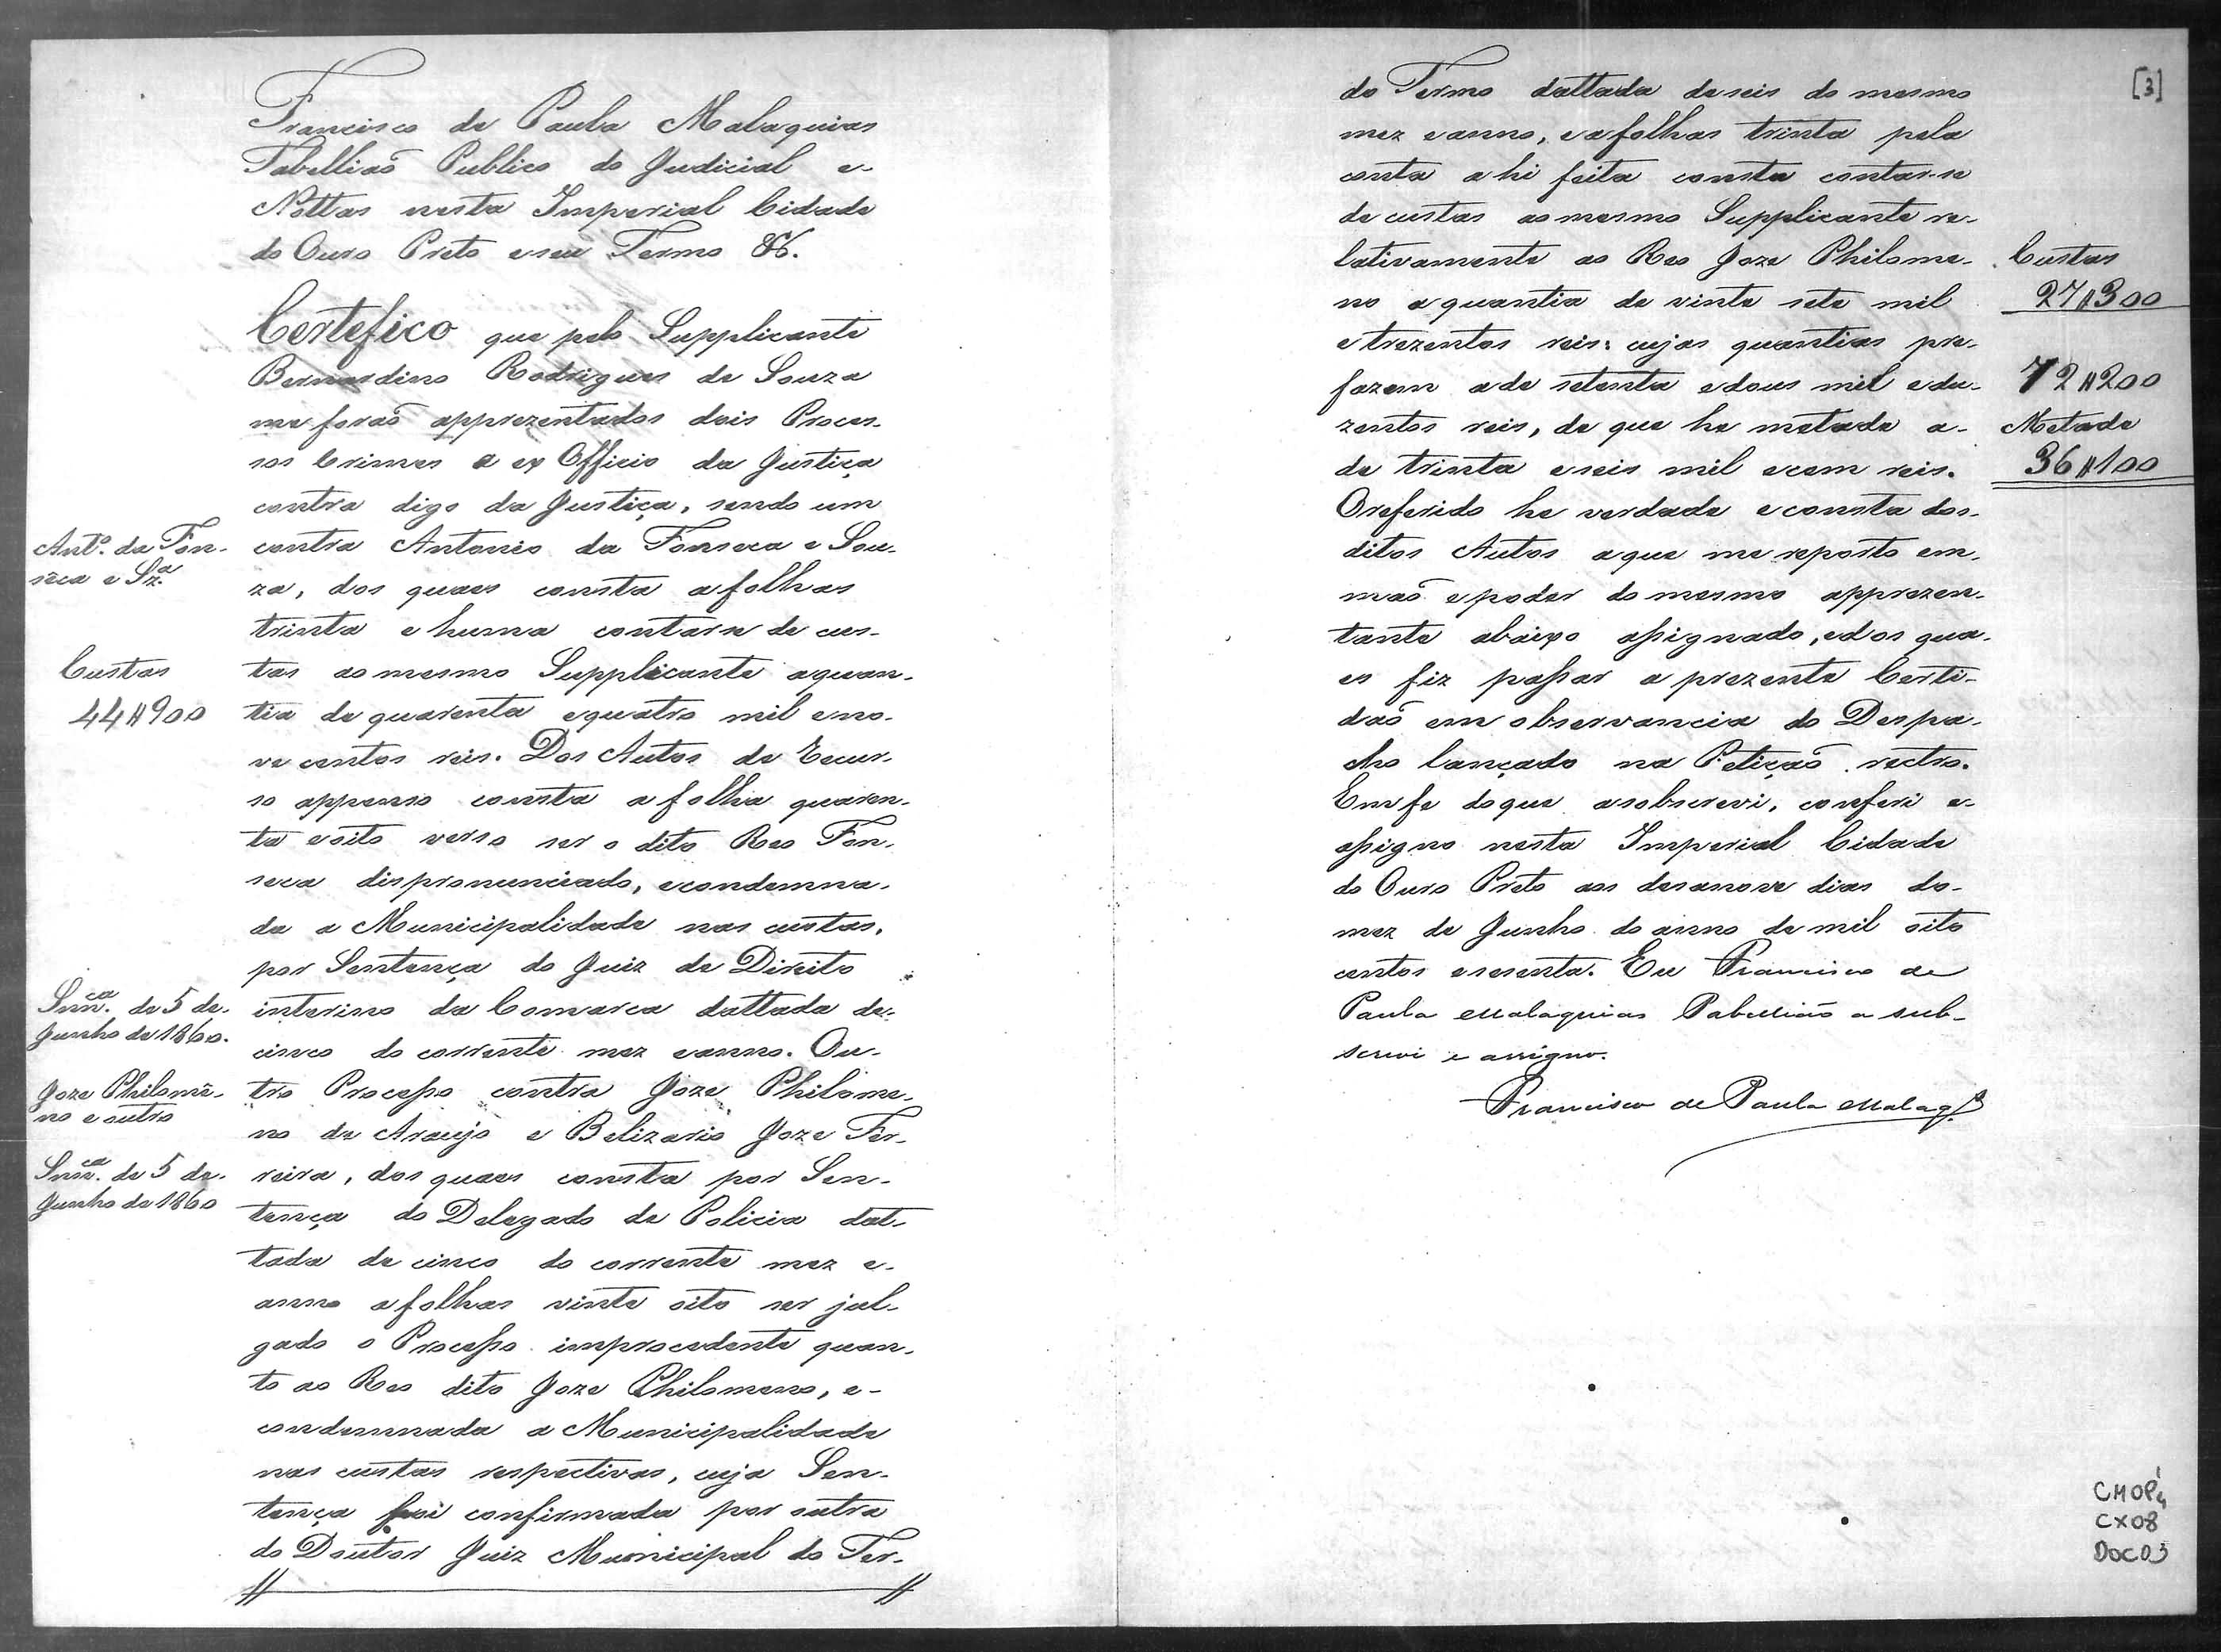 Francisco de Paula Malaquias
Tabelliaõ Publico do Judicial e-
Nottas nesta Imperial Cidade
do Ouro Preto e seu Termo &.
Certefico que pelo Supplicante
Bernardino Rodrigues de Souza
me foraõ apprezentados dois Proces-
sos Crimes a ex Officio da Justiça
contra digo da Justiça, sendo um
contra Antonio da Fonseca e Sou-
za, dos quaes consta a folhas
trinta e huma contarse de cus-
tas ao mesmo Supplicante a quan-
tia de quarenta e quatro mil e no-
ve centos reis. Dos Autos de Recur-
so appenso consta a folha quaren-
ta e oito verso ser o dito Reo Fon-
seca dispronunciado, e condemna-
da a Municipalidade nas custas,
por Sentença do Juiz de Direito
interino da Comarca dattada de-
cinco do corrente mez e anno. Ou-
tro Processo contra Joze Philome-
no de Araujo e Belizario Joze Fer-
reira, dos quaes consta por Sen-
tença do Delegado de Policia dat-
tada de cinco do corrente mez e-
anno a folhas vinte oito ser jul-
gado o Processo improcedente quan-
to ao Reo dito Joze Philomeno, e-
condemnada a Municipalidade
nas custas respectivas, cuja Sen-
tença foi confirmada por outra
do Doutor Juiz Municipal do Ter-
Antº. da Fon-
sêca e Sza.
Custas
44$900
Sença. de 5 de-
Junho de 1860.
Joze Philomê-
no e outro
Sença. de 5 de-
Junho de 1860
[3]
do Termo dattada de seis do mesmo
mez e anno, e a folhas trinta pela
conta a hi feita consta contar-se
de custas ao mesmo Supplicante re-
lativamente ao Reo Joze Philome-
no a quantia de vinte sete mil
e trezentos reis: cujas quantias pre-
fazem a de setenta e dous mil e du-
zentos reis, de que he metade a-
de trinta e seis mil e cem reis.
O referido he verdade e consta dos-
ditos Autos a que me reporto em-
maõ e poder do mesmo apprezen-
tante abaixo assignado, e dos qua-
es fiz passar a prezente Certi-
daõ em observancia do Despa-
cho lançado na Petiçaõ rectro.
Em fe do que a sobscrevi, conferi e-
assigno nesta Imperial Cidade
do Ouro Preto aos desanove dias do-
mez de Junho do anno de mil oito
centos e secenta. Eu Francisco de
Paula Malaquias Tabelliaõ a sub-
screvi e assigno.
Francisco de Paula Malaqs.
Custas
27$300
72$200
Metade
36$100
CMOP
CX08
DOC03